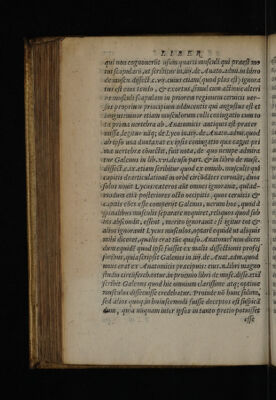 LIBER
qui non cognouerit usum quarti musculi qui præest mo
tui scapularū, ut scribitur in .iiij. de. Anato. admi. in libro
de muscu. dissect. c. xvij. cuius etiam (quod plus est) ignora
tus est eius tendo, & exortus, simul cum actione alteri
us musculi scapulam in priorem regionem ceruicis ver=
sus proprium principium adducentis qui angustus est et
longus: unam etiam musculorum colli coniugatio cum to
ta prima vertebra ab. Anatomicis antiquis est præter
missa, legitur nāq; de Lyco in .iiij. de. Anato. admi. quod
ab ipso una duntaxat ex ipsis coniugatio quæ caput pri
ma vertebra connectat, fuit nota, de quo nempe admira
tur Galenus in lib. xvi. de usu part. & in libro de musc.
dissect. c. ix. etiam scribitur quod ex omnib. musculis qui
capitis dearticulationē in orbē circūdāt ceruicis, duos
solos nouit Lycus: cæteros aūt omnes ignorauit, qui ad=
motores etiā posteriores octo necipitis, quos ceruicis &
capitis cōes esse comperijt Galenus, uerum hoc, quòd à
spinalibus musculis separare nequeat, reliquos quod sub
iens abscondit, essent, merito ignorauit: si igitur hos &
alios ignorauit Lycus musculos, oportet equidē ut aliquis
mihi diceret, qualis erat tūc quæso. Anatomia? non dicen
dum equidē quod ipsi fuisset ex malis dissectionū profes
soribus, quia scripsit Galenus in .iiij. de. Anat. adm. quod
unus erat ex Anatomicis præcipuis: cuius .n. libri magno
studio circūferebātur, in proœmio libri de musc. dissec. etiā
scribit Galenus quod hic omnium clarissime atq; optime
musculos dissecuisse credebatur. Proinde nō hunc solum,
sed alios quoq; in huiuscemodi fuisse deceptos est suspicā
dum, quia nunquam inter ipsos in tanto pretio potuisset
esse